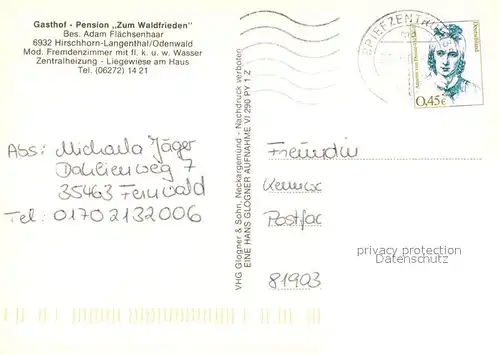 Gasthof - Pension „Zum Waldfrieden"
Bes. Adam Flächsenhaar
6932 Hirschhorn-Langenthal/Odenwald
Mod. Fremdenzimmer mit fl. k. u. w. Wasser
Zentralheizung - Liegewiese am Haus
Tel. (06272) 14 21
Abs: Michaela Jäger
Dahlienweg 7
35463 Fernwald
Tel: 01702132006
VHG Glogner & Sohn, Neckargemünd - Nachdruck verboten
EINE HANS GLOGNER AUFNAHME VI 290 PY 1 Z
BRIEFZENT
Deutschland
0,45€
Freundin
Postfac
81903
privacy protection
Datenschutz